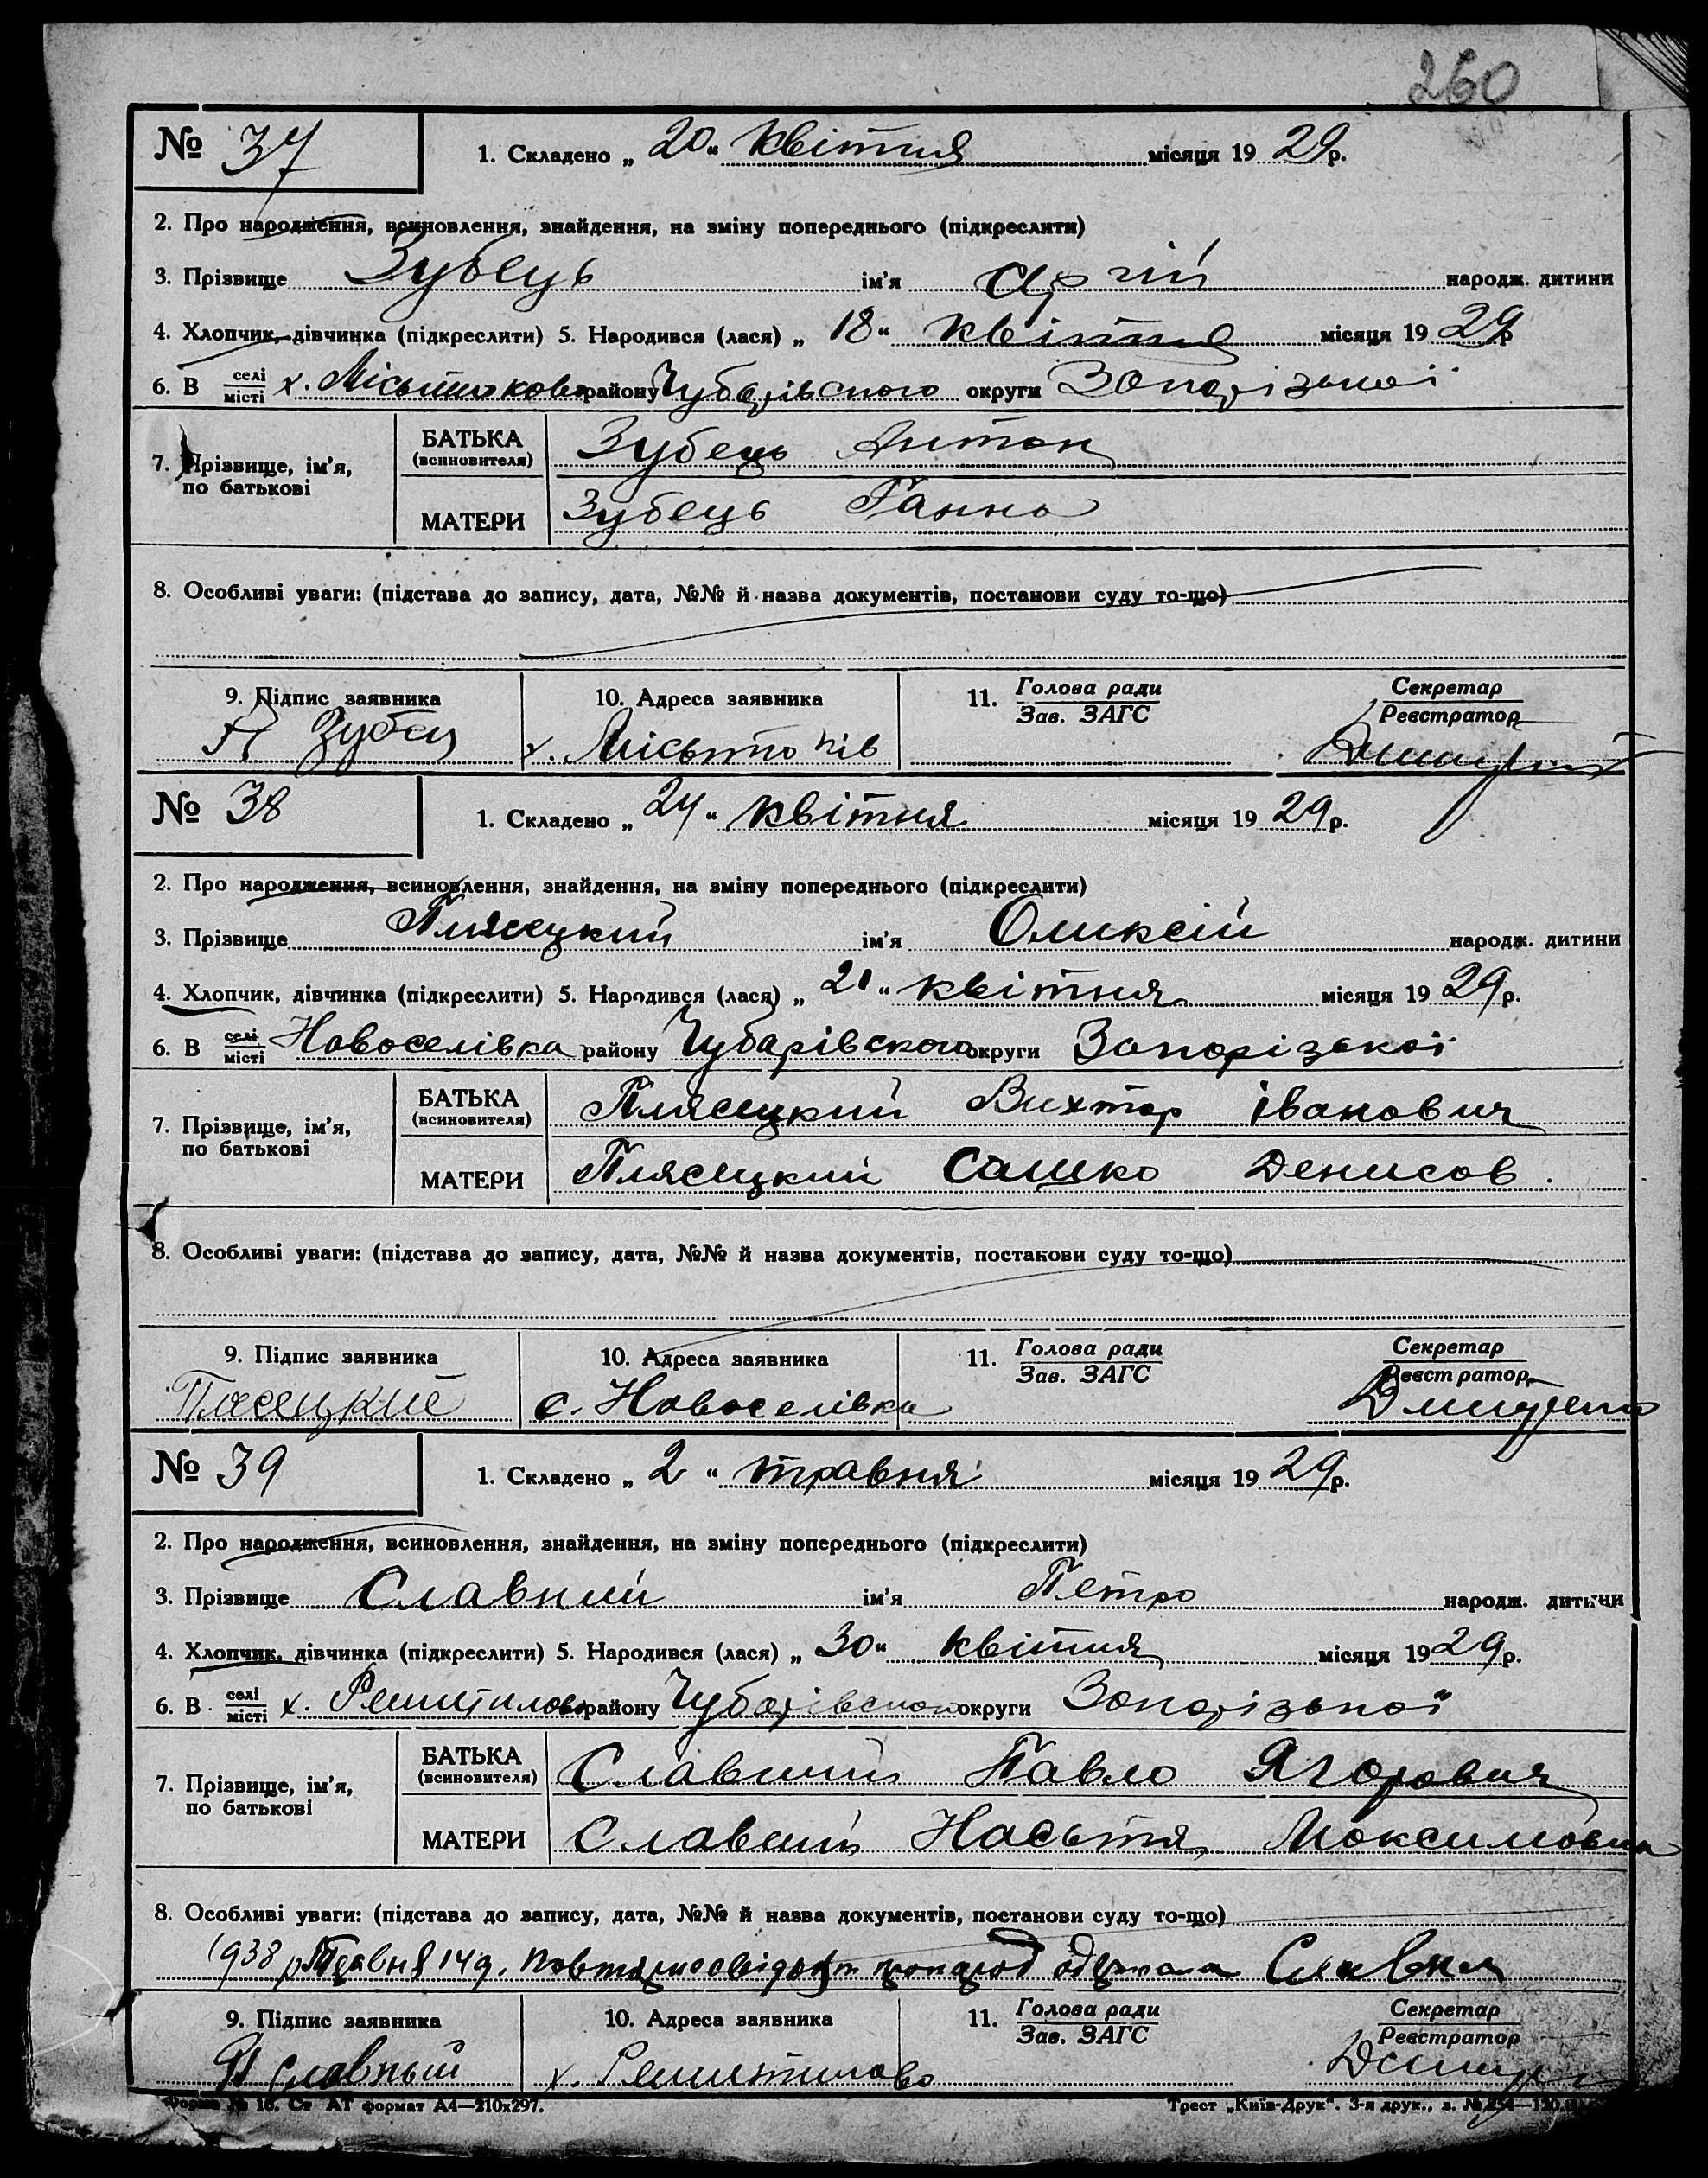 260
№ 37 1. Складено „ 20 “ квітня місяця 19 29 р.
2. Про народження, всиновлення, знайдення, на зміну попереднього (підкреслити)
3. Прізвище Зубець ім'я народж. дитини
4. Хлопчик, дівчинка (підкреслити) 5. Народився (лася) „ 18 “ квітня місяця 19 29 р
6. В селі/місті х. району Чубарівського округи Запорізької
7. Прізвище, ім'я, по батькові БАТЬКА (всиновителя) Зубець Антон
МАТЕРИ Зубець Ганна
8. Особливі уваги: (підстава до запису, дата, №№ й назва документів, постанови суду то-що)
9. Підпис заявника 10. Адреса заявника 11. Голова ради/Зав. ЗАГС Секретар/Реєстратор
х.
№ 38 1. Складено „ 24 “ квітня місяця 19 29 р.
2. Про народження, всиновлення, знайдення, на зміну попереднього (підкреслити)
3. Прізвище Плясецкий ім'я Оликсій народж. дитини
4. Хлопчик, дівчинка (підкреслити) 5. Народився (лася) „ 21 “ квітня місяця 19 29 р.
6. В селі/місті Новоселівка району Чубарівського округи Запорізької
7. Прізвище, ім'я, по батькові БАТЬКА (всиновителя) Плясецкий Вихтор Іванович
МАТЕРИ Плясецкий Сашко Денисов.
8. Особливі уваги: (підстава до запису, дата, №№ й назва документів, постанови суду то-що)
9. Підпис заявника 10. Адреса заявника 11. Голова ради/Зав. ЗАГС Секретар/Реєстратор
Плесецкий с. Новоселівка
№ 39 1. Складено „ 2 “ травня місяця 19 29 р.
2. Про народження, всиновлення, знайдення, на зміну попереднього (підкреслити)
3. Прізвище Славний ім'я Петро народж. дитини
4. Хлопчик, дівчинка (підкреслити) 5. Народився (лася) „ 30 “ квітня місяця 19 29 р.
6. В селі/місті х. району Чубарівського округи Запорізької
7. Прізвище, ім'я, по батькові БАТЬКА (всиновителя) Славний Павло Ягорович
МАТЕРИ Славний Насьтя Максимовна
8. Особливі уваги: (підстава до запису, дата, №№ й назва документів, постанови суду то-що)
1938 р Травня 14 д.
9. Підпис заявника 10. Адреса заявника 11. Голова ради/Зав. ЗАГС Секретар/Реєстратор
П Славный х.
Форма № 16. Ст АТ формат А4—210х297. Трест „Київ-Друк“. 3-я друк., з.